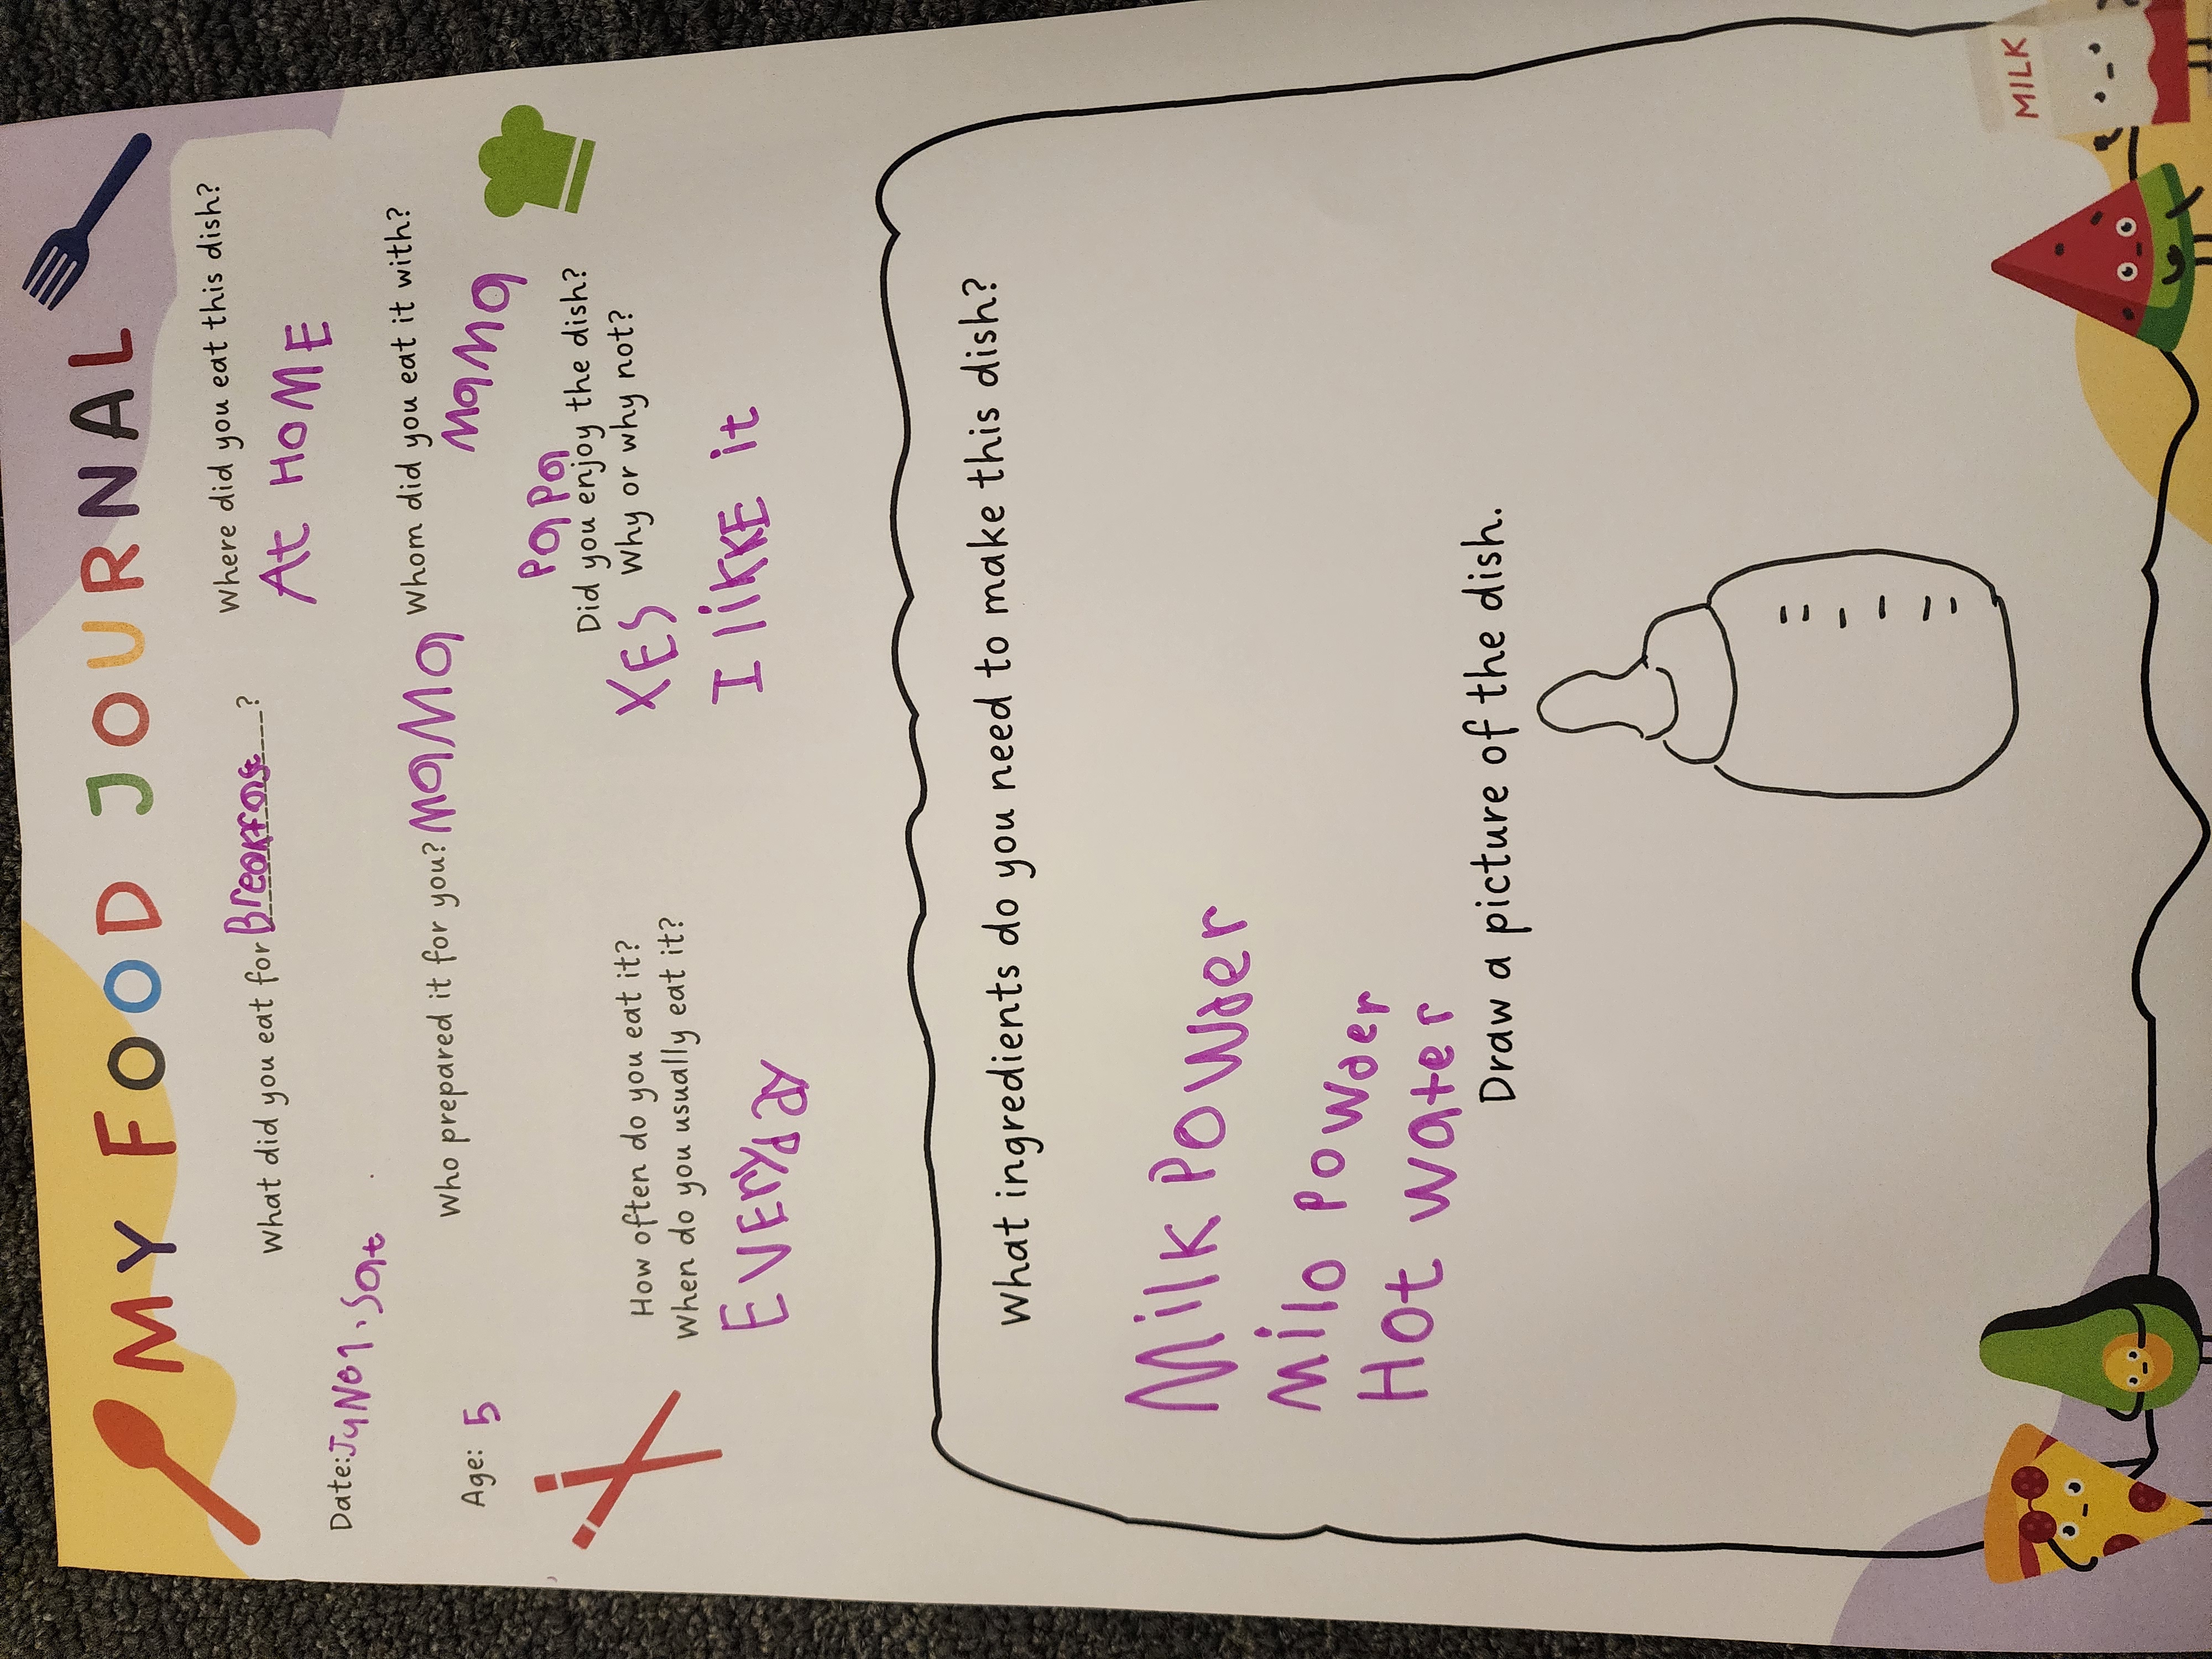 MY FOOD JOURNAL
Date: JUNE 1, Sat
Age: 5
What did you eat for Breakfast?
Where did you eat this dish?
At HOME
Who prepared it for you? MaMa
Whom did you eat it with?
MaMa
PaPa
How often do you eat it?
When do you usually eat it?
EVERYday
Did you enjoy the dish?
Why or why not?
YES
I likE it
What ingredients do you need to make this dish?
Milk POWder
Milo Powder
Hot water
Draw a picture of the dish.
MILK